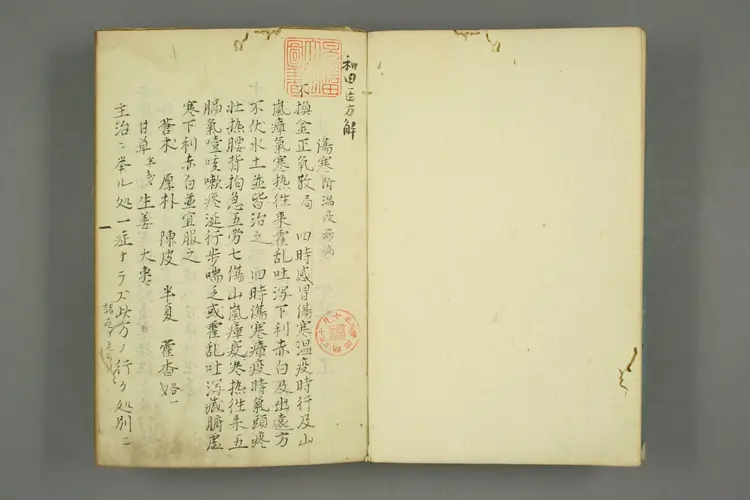 和田医方解
傷寒附温疫
不換金正氣散局 四時感冒傷寒温疫時行及山
嵐瘴氣寒热徃来霍乱吐瀉下利赤白及出遠方
不伏水土並皆治之 四時傷寒瘴疫時氣頭疼
壮热腰背拘急五労七傷山嵐瘴疫寒热徃来五
膈氣噎咳嗽痰涎行歩喘乏或霍乱吐瀉臓腑虚
寒下利赤白並宜服之
蒼朮 厚朴 陳皮 半夏 藿香
甘草 生姜 大棗
主治ニ挙ル処一症ナラズ此方ノ行ク処別ニ